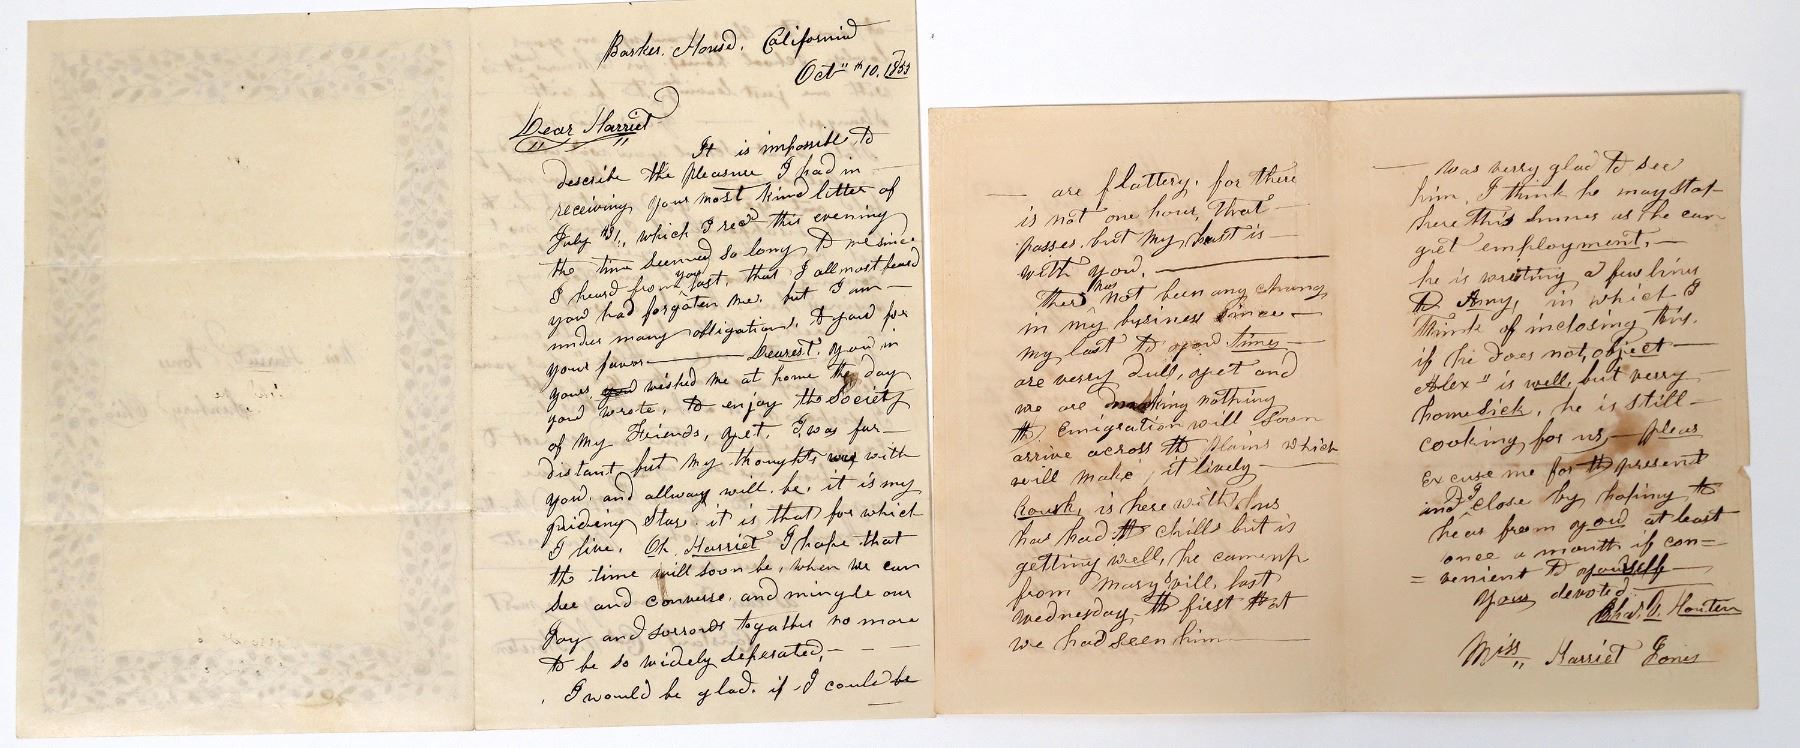 Barker. House. California
Oct" th 10. 1855
Dear Harriet
It is impossible to
describe the pleasure I had in
receiving your most kind letter of
July 31, which I recd this evening
the time seemed so long to me since
I heard from you last, that I allmost feard
you had forgaten me. but I am
under many obligations, to you for
your favor Dearest. you in
yours you wished me at home the day
you wrote, to enjoy the Society
of my Friends, yet, I was far
distant but my thoughts was with
you. and allway will. be, it is my
guiding Star. it is that for which
I live. Oh. Harriet I hope that
the time will soon be, when we can
see and converse. and mingle our
Joy and sorrows togather no more
to be so widely seperated,
I would be glad. if I could be
are flattery. for there
is not one hour, that
passes, but my heart is
with you.
There has not been any change
in my bysiness since
my last to you Times
are verry dull, yet and
we are making nothing
th. Emigration will soon
arrive across the plains which
will make it lively
is here with us
has had the chills but is
getting well, he came up
from Marysvill, last
Wednesday the first that
we had seen him
was verry glad to see
him, I think he may stop
here this as he can
get employment.
he is wrting a few lines
to Amy, in which I
think of inclosing this.
if he does not, object
Alex" is well, but verry
homesick, he is still
cooking for us, pleas
Excuse me for the present
and I close by hoping to
hear from you at least
once a month if con=
=venient to yourself
Your devoted
Chas. V. Houten
Miss Harriet Jones
Miss Harriet Jones
Sunbury Ohio